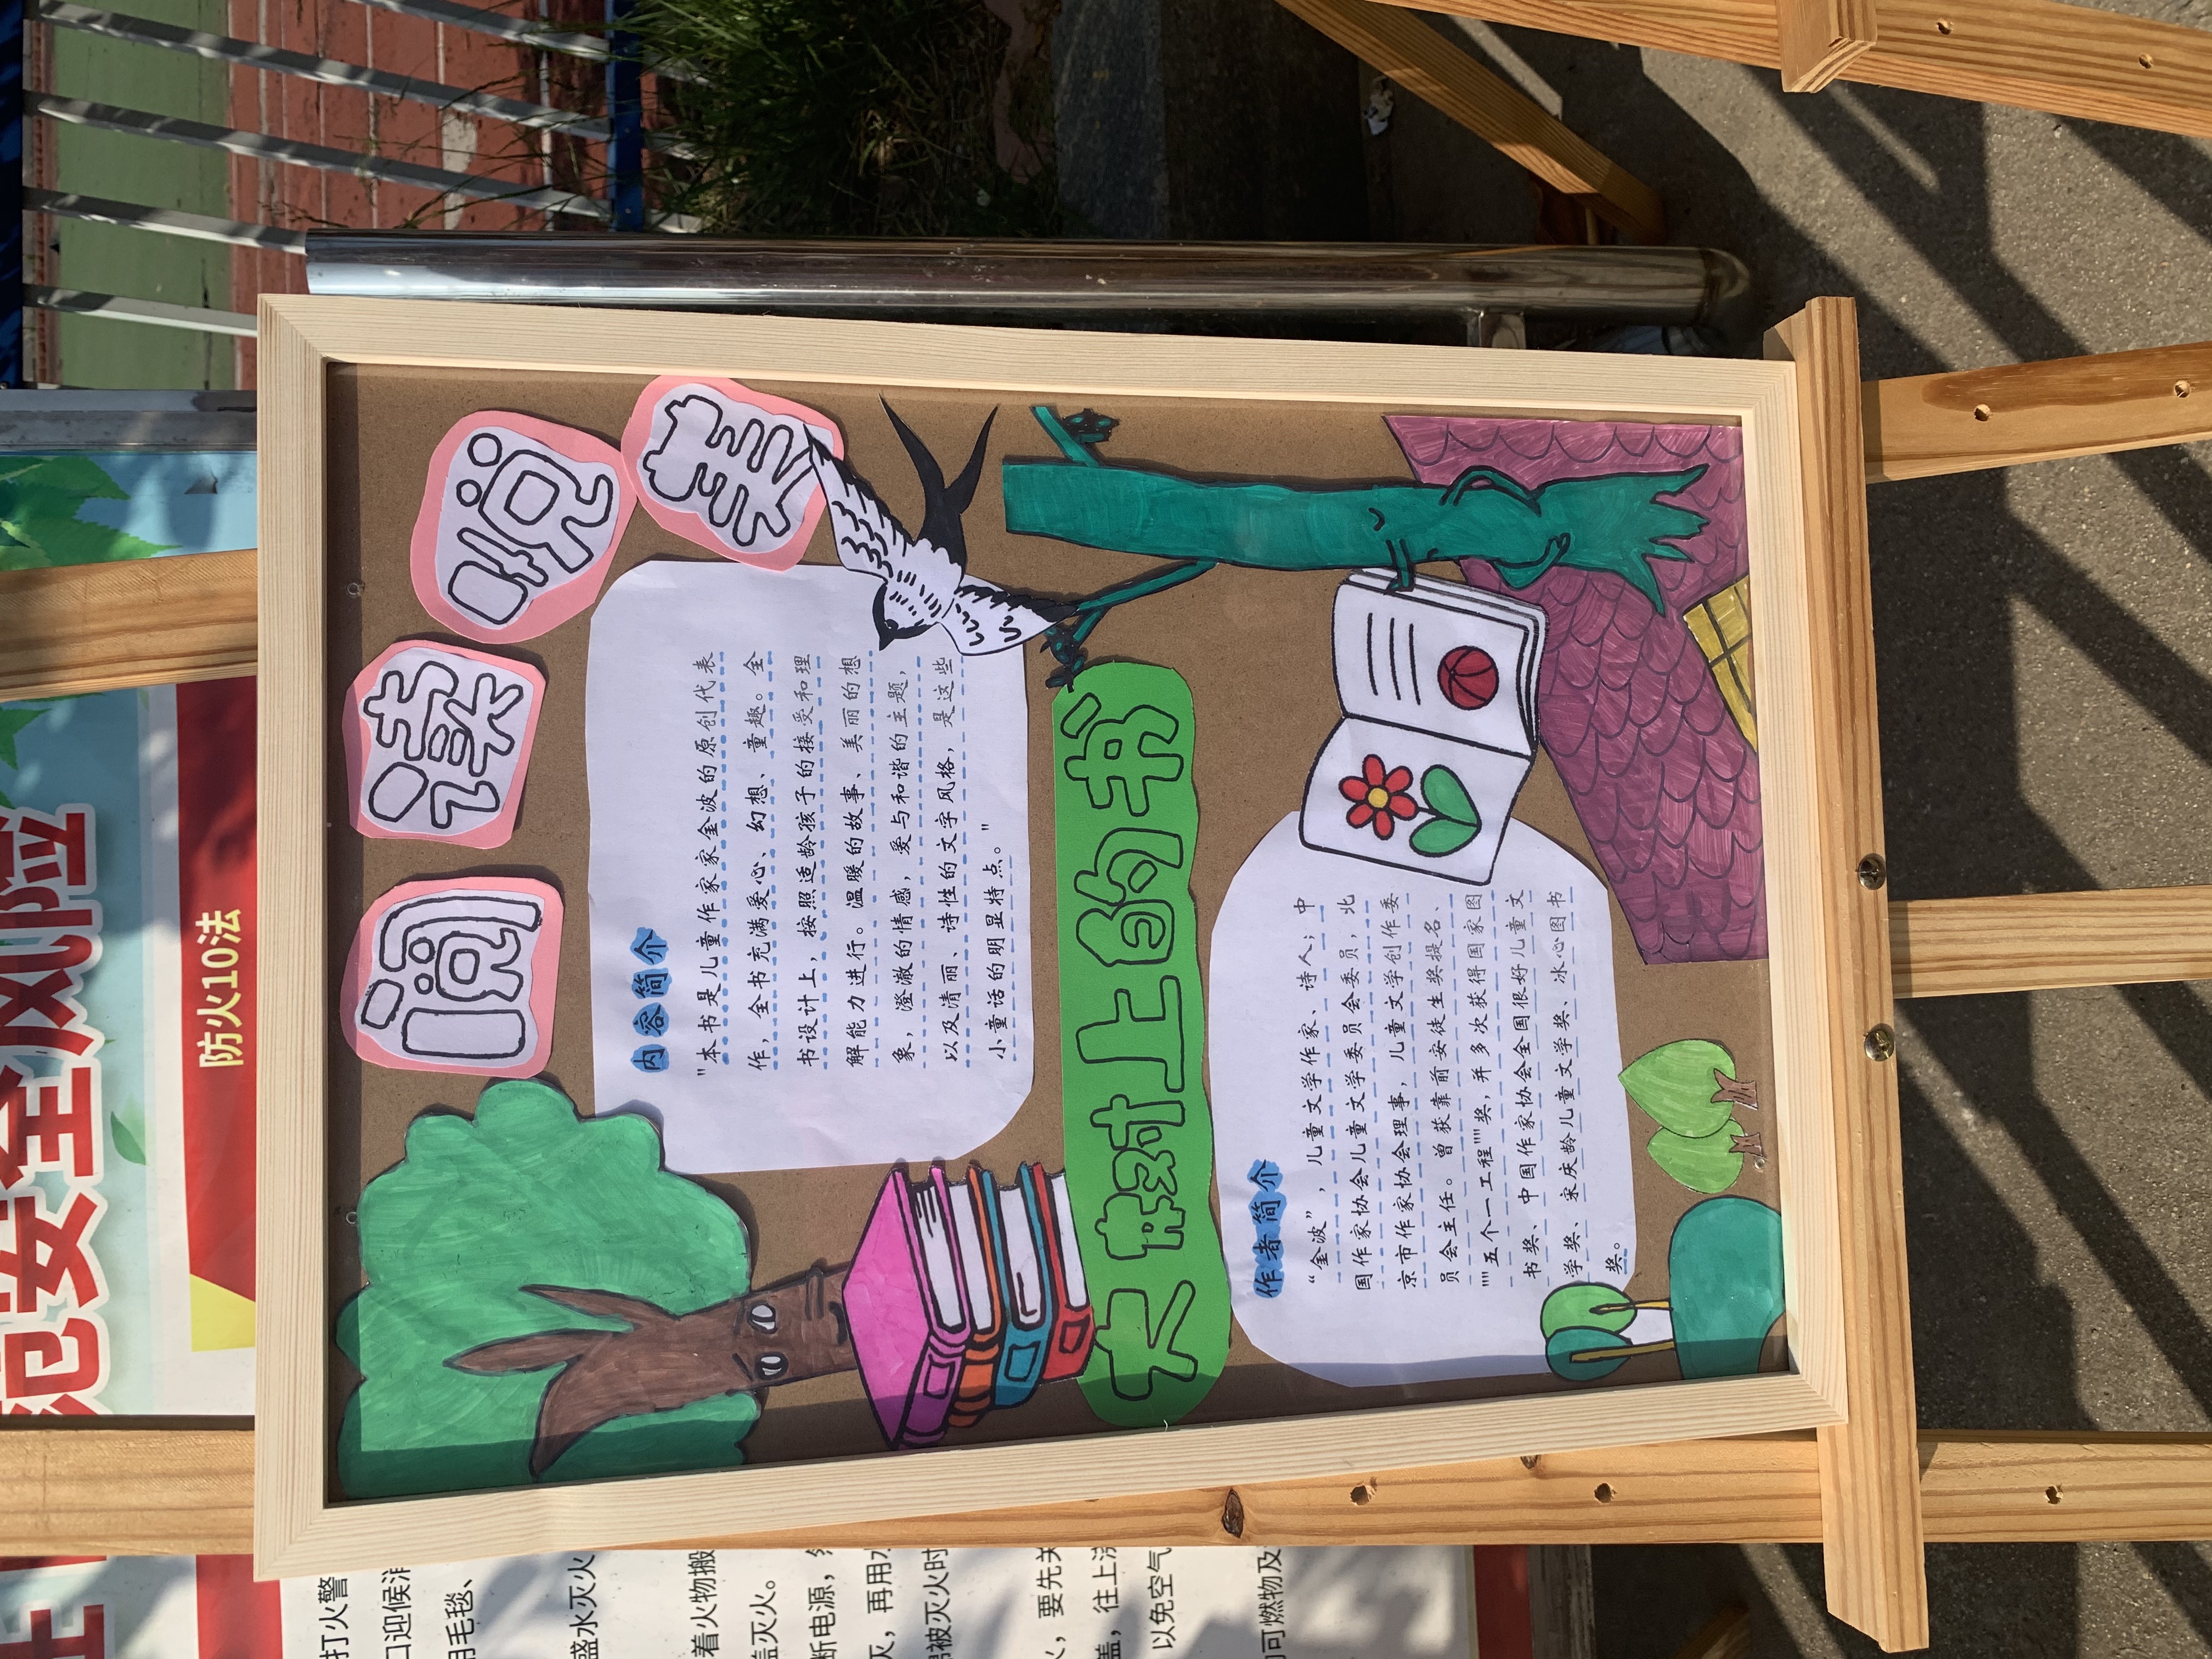 阅读悦美
内容简介
"本书是儿童作家金波的原创代表
作，全书充满爱心、幻想、童趣。全
书设计上，按照适龄孩子的接受和理
解能力进行。温暖的故事、美丽的想
象，澄澈的情感，爱与和谐的主题，
以及清丽、诗性的文字风格，是这些
小童话的明显特点。"
大树上的书
作者简介
“金波”，儿童文学作家、诗人；中
国作家协会儿童文学委员会委员，北
京市作家协会理事，儿童文学创作委
员会主任。曾获靠前安徒生奖提名、
""五个一工程""奖，并多次获得国家图
书奖、中国作家协会全国很好儿童文
学奖、宋庆龄儿童文学奖、冰心图书
奖。
范安全风险
防火10法
打火警
口迎候消
用毛毯、
盛水灭火
着火物搬
盖灭火。
断电源，
灭，再用水
被灭火时
火，要先关
盖，往上浇
以免空气
可燃物及